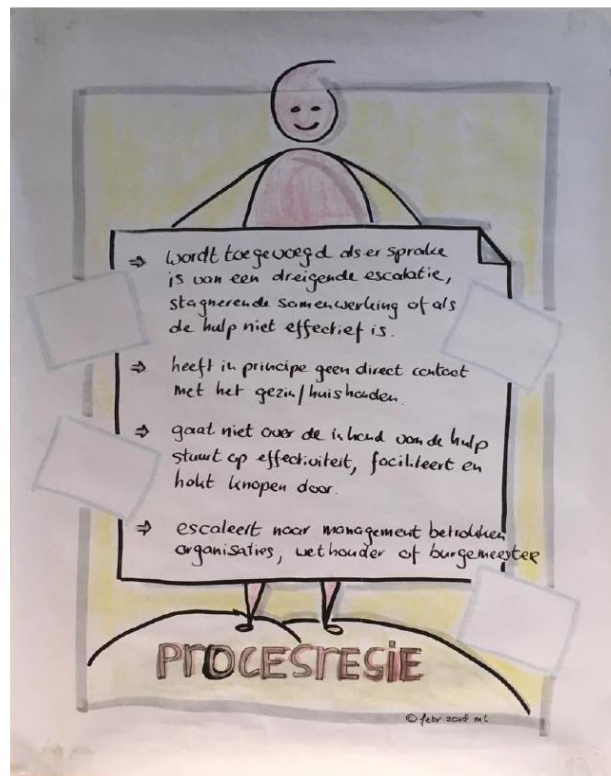 ⇒ wordt toegevoegd als er sprake
is van een dreigende escalatie,
stagnerende samenwerking of als
de hulp niet effectief is.
⇒ heeft in principe geen direct contact
met het gezin/huishouden.
⇒ gaat niet over de inhoud van de hulp
stuurt op effectiviteit, faciliteert en
hakt knopen door.
⇒ escaleert naar management betrokken
organisaties, wethouder of burgemeester
PROCESREGIE
© febr ml